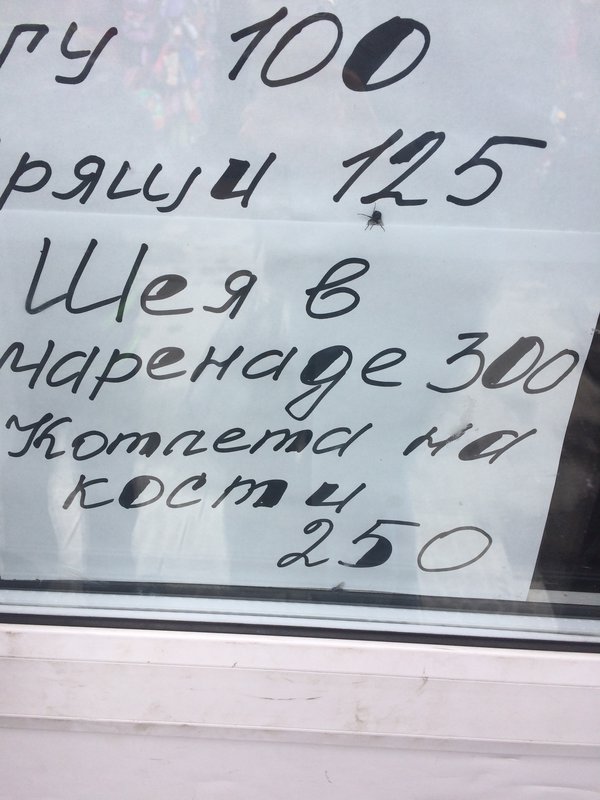 гу 100
рящи 125
Шея в
маренаде 300
Котлета на
кости
250